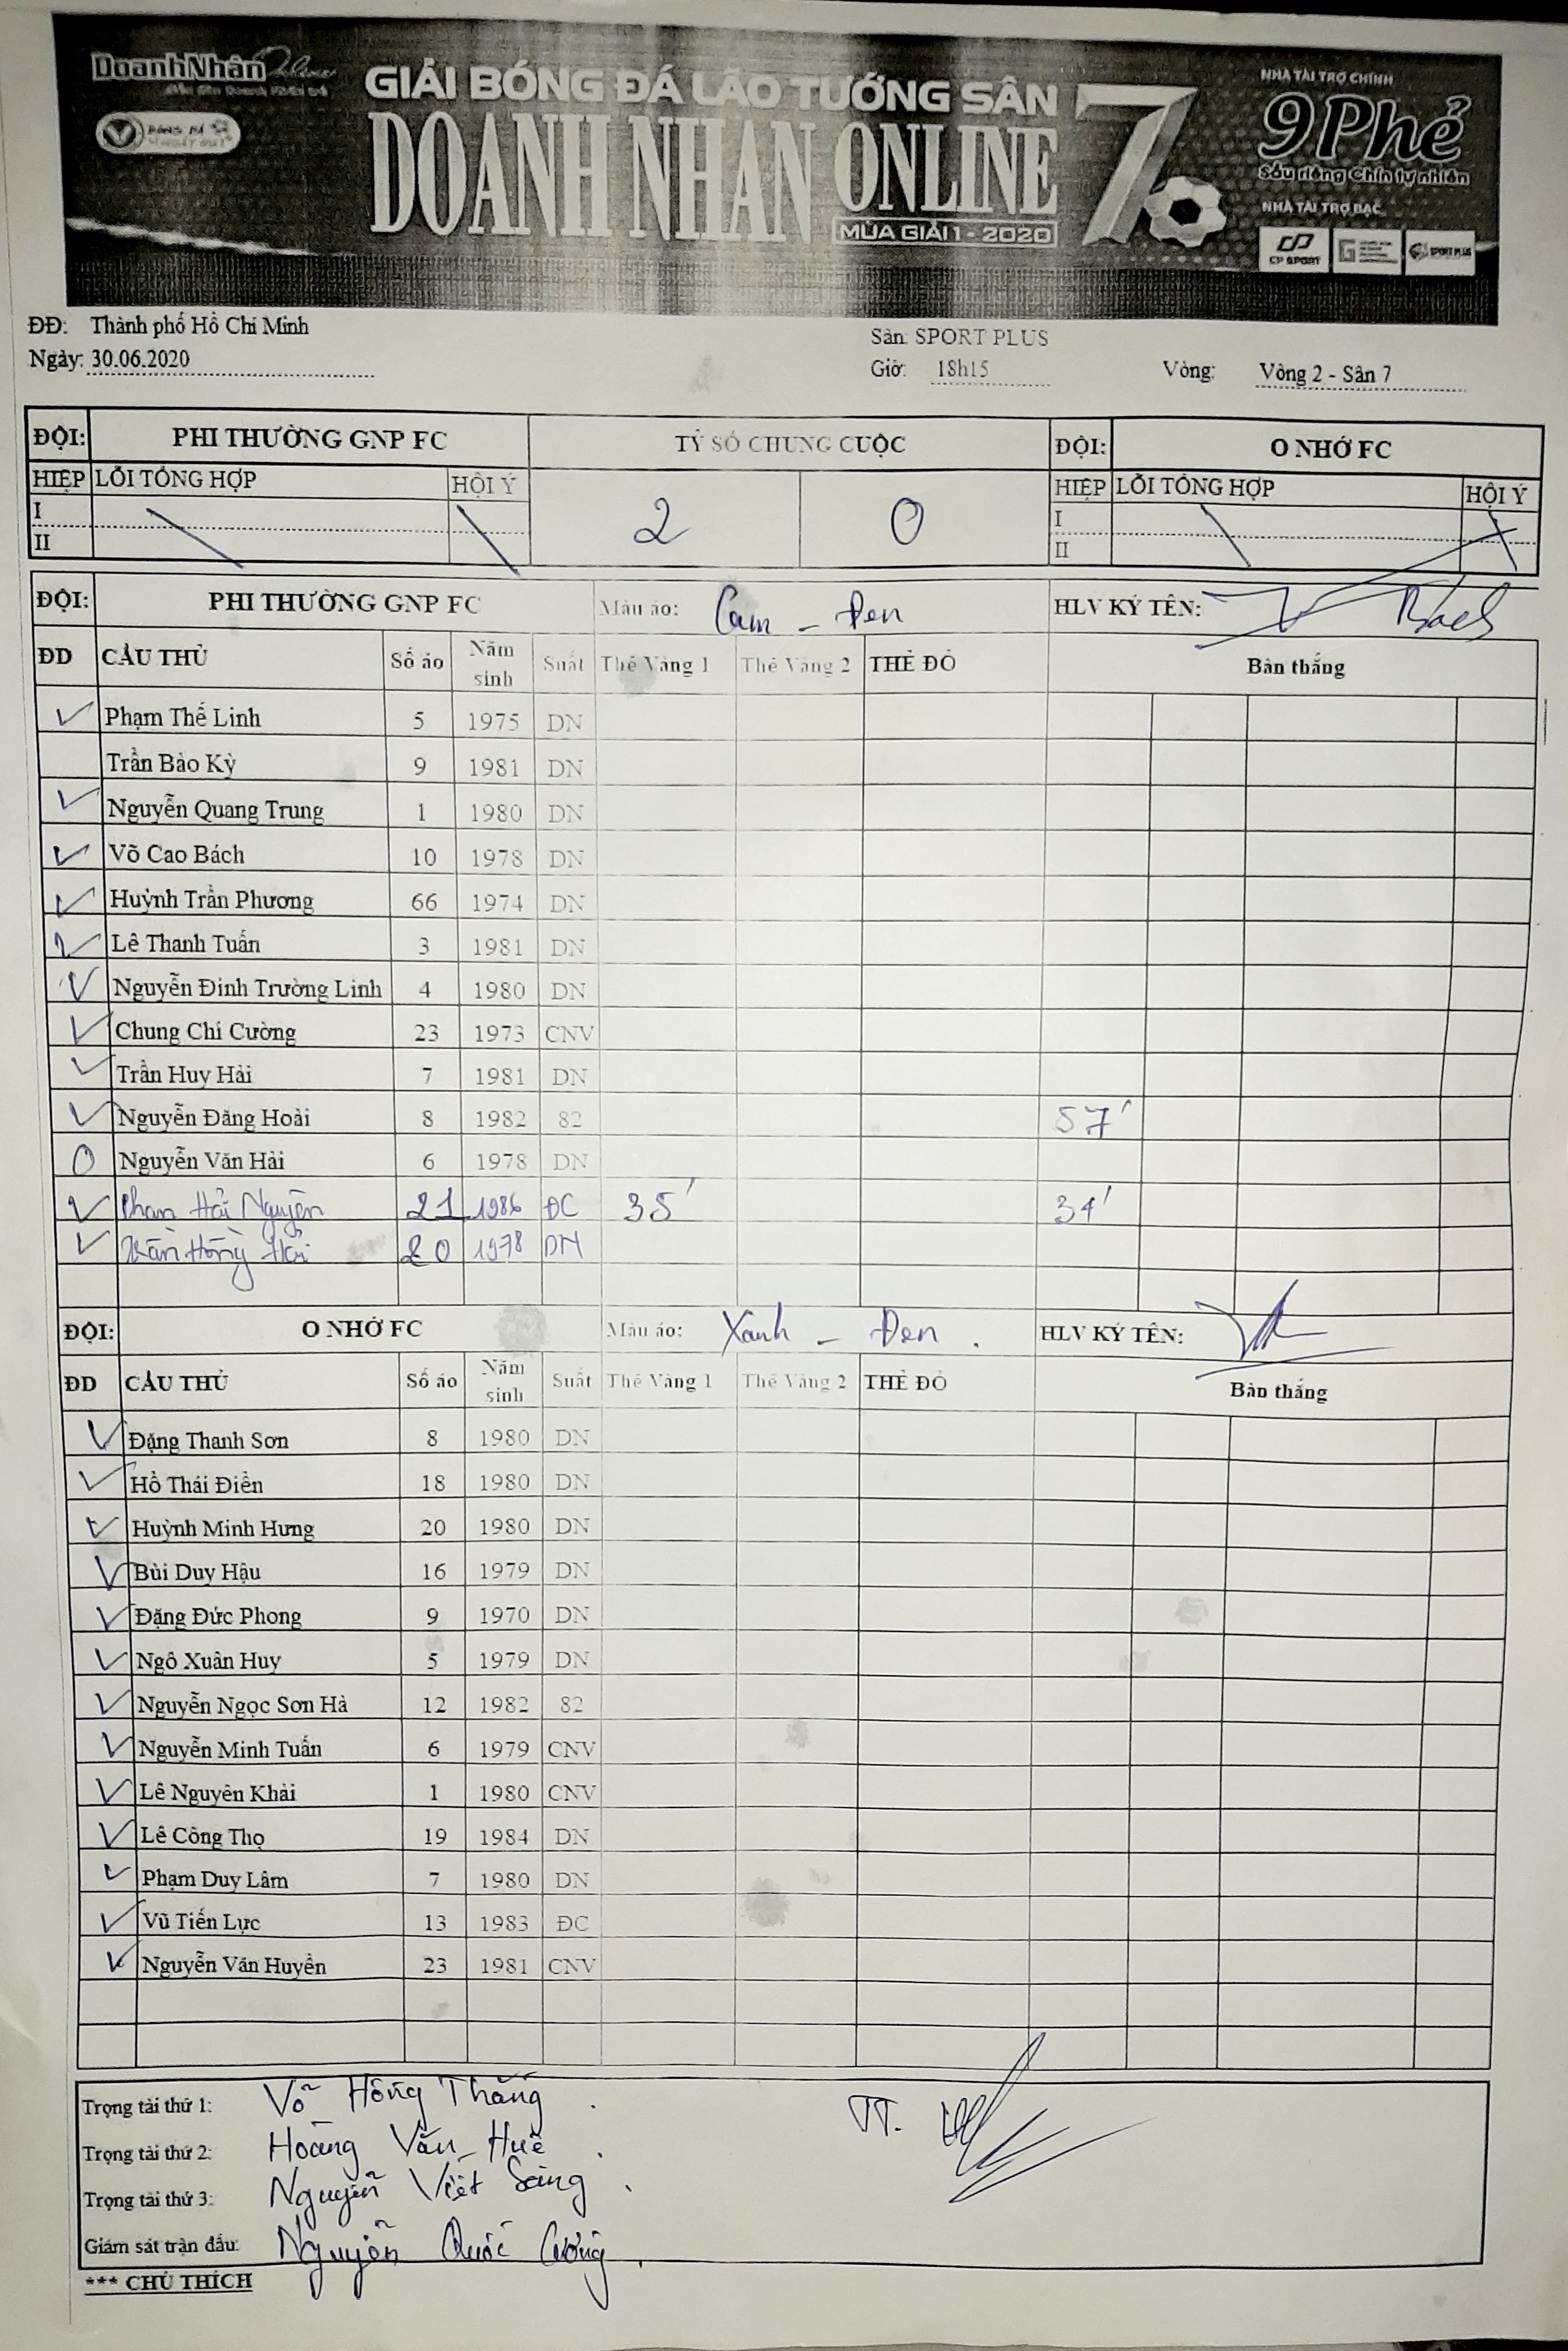 DoanhNhân Online
BÓNG ĐÁ
GIẢI BÓNG ĐÁ LÃO TƯỚNG SÂN 7
DOANH NHÂN ONLINE
MÙA GIẢI 1 - 2020
NHÀ TÀI TRỢ CHÍNH
9Phẻ
Sầu riêng Chín tự nhiên
NHÀ TÀI TRỢ BẠC
CP SPORT
SPORT PLUS
ĐĐ: Thành phố Hồ Chí Minh
Sân: SPORT PLUS
Ngày: 30.06.2020 Giờ: 18h15 Vòng: Vòng 2 - Sân 7
ĐỘI: PHI THƯỜNG GNP FC TỶ SỐ CHUNG CUỘC ĐỘI: O NHỚ FC
HIỆP LỖI TỔNG HỢP HỘI Ý 2 0 HIỆP LỖI TỔNG HỢP HỘI Ý
I I
II II
ĐỘI: PHI THƯỜNG GNP FC Màu áo: Cam - Đen HLV KÝ TÊN: Bách
ĐD CẦU THỦ Số áo Năm sinh Suất Thẻ Vàng 1 Thẻ Vàng 2 THẺ ĐỎ Bàn thắng
Phạm Thế Linh 5 1975 DN
Trần Bảo Kỳ 9 1981 DN
Nguyễn Quang Trung 1 1980 DN
Võ Cao Bách 10 1978 DN
Huỳnh Trần Phương 66 1974 DN
Lê Thanh Tuấn 3 1981 DN
Nguyễn Đình Trường Linh 4 1980 DN
Chung Chí Cường 23 1973 CNV
Trần Huy Hải 7 1981 DN
Nguyễn Đăng Hoài 8 1982 82 57'
O Nguyễn Văn Hải 6 1978 DN
Phan Hải Nguyên 21 1986 ĐC 35' 34'
Trần Hồng Hải 20 1978 DN
ĐỘI: O NHỚ FC Màu áo: Xanh - Đen . HLV KÝ TÊN:
ĐD CẦU THỦ Số áo Năm sinh Suất Thẻ Vàng 1 Thẻ Vàng 2 THẺ ĐỎ Bàn thắng
Đặng Thanh Sơn 8 1980 DN
Hồ Thái Điền 18 1980 DN
Huỳnh Minh Hưng 20 1980 DN
Bùi Duy Hậu 16 1979 DN
Đặng Đức Phong 9 1970 DN
Ngô Xuân Huy 5 1979 DN
Nguyễn Ngọc Sơn Hà 12 1982 82
Nguyễn Minh Tuấn 6 1979 CNV
Lê Nguyên Khải 1 1980 CNV
Lê Công Thọ 19 1984 DN
Phạm Duy Lâm 7 1980 DN
Vũ Tiến Lực 13 1983 ĐC
Nguyễn Văn Huyền 23 1981 CNV
Trọng tài thứ 1: Võ Hồng Thắng . TT.
Trọng tài thứ 2: Hoàng Văn Huê .
Trọng tài thứ 3: Nguyễn Viết Sáng .
Giám sát trận đấu: Nguyễn Quốc Cường .
*** CHÚ THÍCH